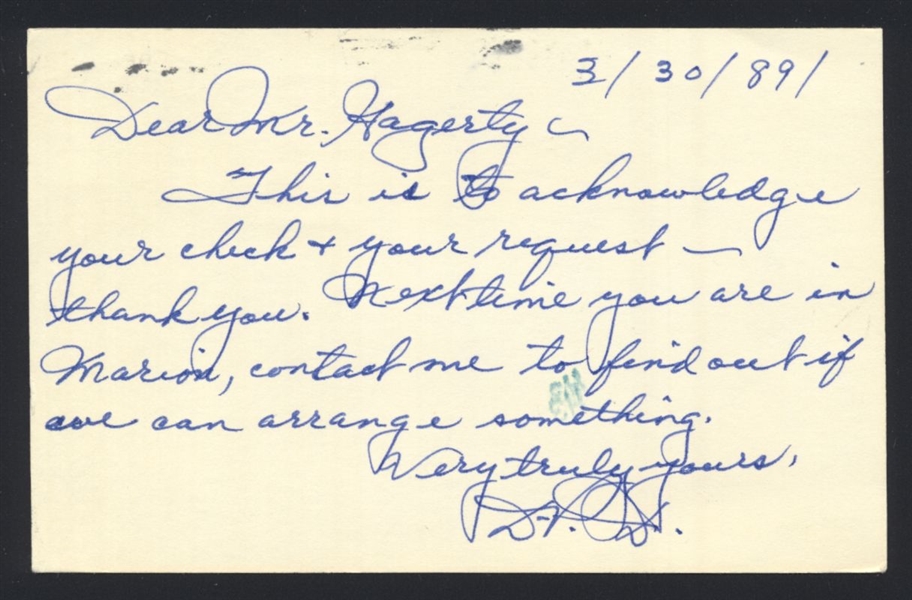 3/30/89/
Dear Mr. Hagerty ~
This is to acknowledge
your check + your request —
thank you. Next time you are in
Marion, contact me to find out if
we can arrange something.
Very truly yours,